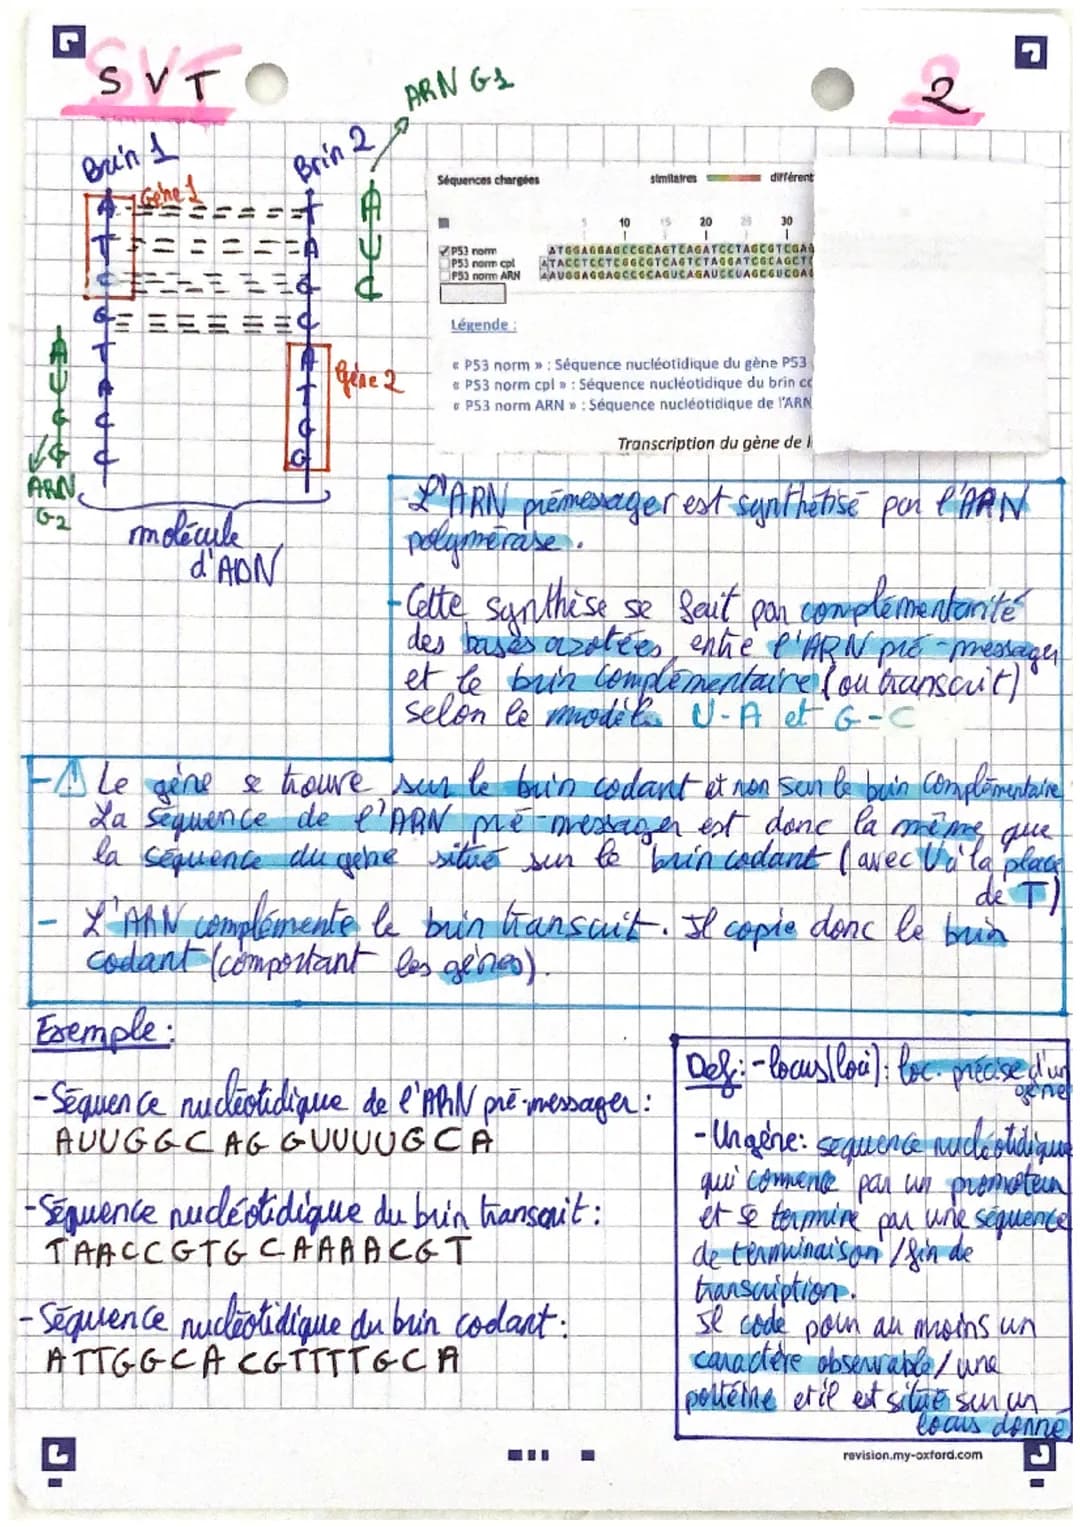 SVT
2
ARN G1
Brin 1
Brin 2
Gène 1
A T
T A
C G
G C
T A
A T
C G
C G
A
U
C
A
U
G
G
ARN G2
Gène 2
molécule
d'ADN
Séquences chargées
similaires
différent
5 10 15 20 25 30
P53 norm ATGGAGGAGCCGCAGTCAGATCCTAGCGTCGAG
P53 norm cpl ATACCTCCTCGGCGTCAGTCTAGGATCGCAGCTC
P53 norm ARN AAUGGAGGAGCCGCAGUCAGAUCCUAGCGUCGAG
Légende :
« P53 norm » : Séquence nucléotidique du gène P53
« P53 norm cpl » : Séquence nucléotidique du brin co
« P53 norm ARN » : Séquence nucléotidique de l'ARN
Transcription du gène de l
- L'ARN prémessager est synthétisé par l'ARN
polymérase.
- Cette synthèse se fait par complémentarité
des bases azotées, entre l'ARN pré-messager
et le brin complémentaire (ou transcrit)
selon le modèle U-A et G-C
- ⚠ Le gène se trouve sur le brin codant et non sur le brin complémentaire
La séquence de l'ARN pré-messager est donc la même que
la séquence du gène situé sur le brin codant (avec U à la place
de T)
- L'ARN complémente le brin transcrit. Il copie donc le brin
codant (comportant les gènes).
Exemple :
- Séquence nucléotidique de l'ARN pré-messager :
AUUGGCAGGUUUUGCA
- Séquence nucléotidique du brin transcrit :
TAACCGTGCAAAACGT
- Séquence nucléotidique du brin codant :
ATTGGCACGTTTTGCA
Def : - locus (loci) : loc. précise d'un
gène
- Un gène : séquence nucléotidique
qui commence par un promoteur
et se termine par une séquence
de terminaison / fin de
transcription.
Il code pour au moins un
caractère observable / une
protéine et il est situé sur un
locus donné
revision.my-oxford.com